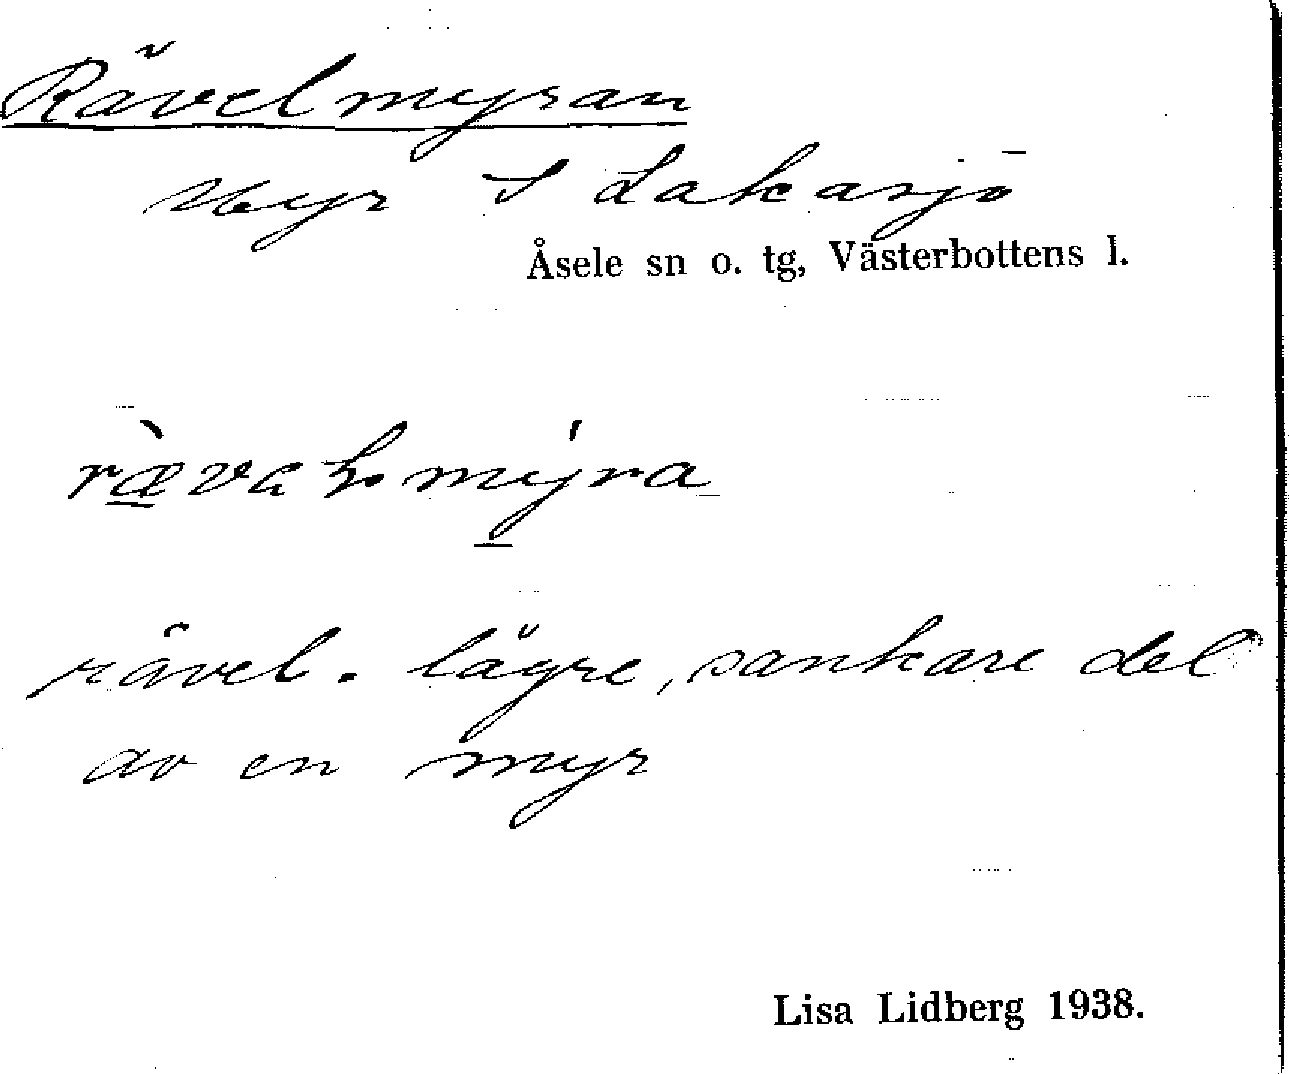 Rävelmyran
Myr S Lakasjö
Åsele sn o. tg, Västerbottens l.
rävel. lägre, sankare del
av en myr
Lisa Lidberg 1938.